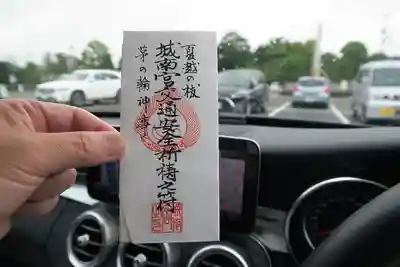 夏越の祓
城南宮交通安全祈祷之符
茅の輪神事